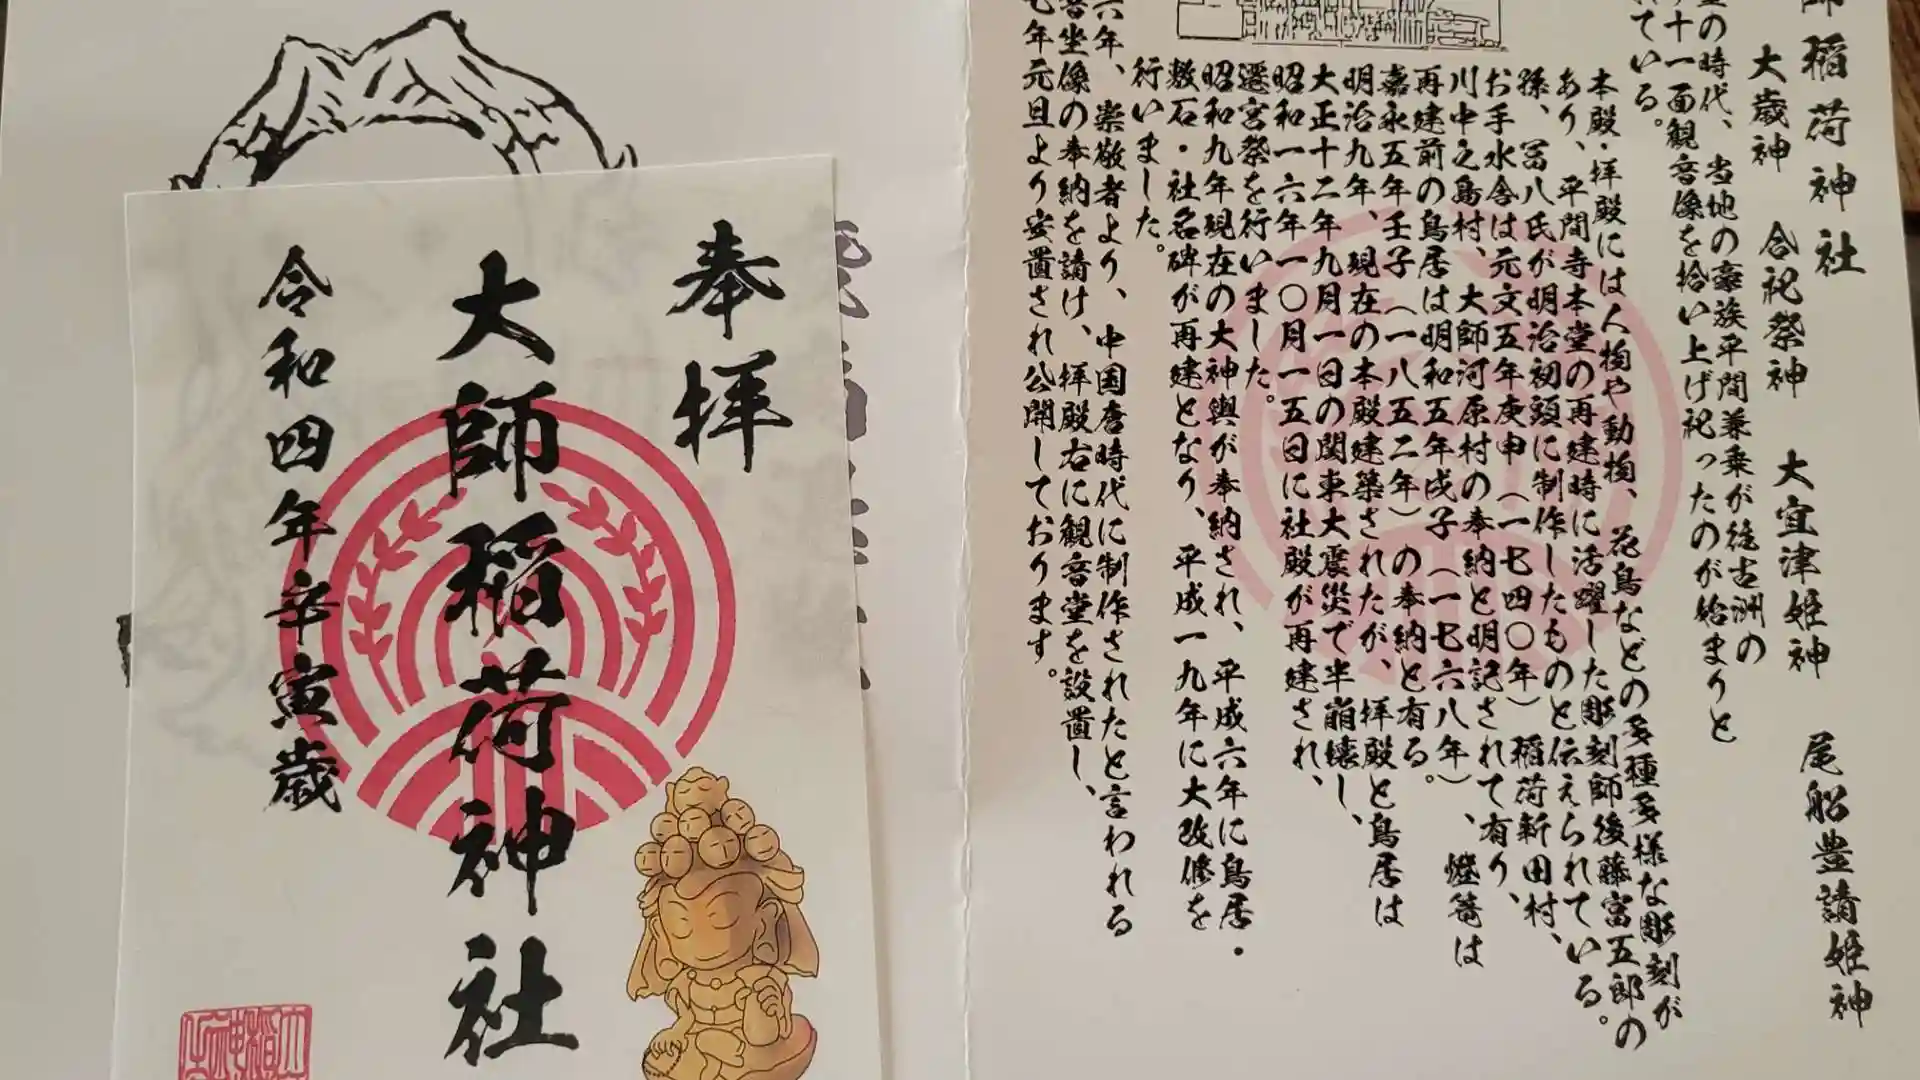 奉拝
大師稲荷神社
令和四年辛寅歳
師稲荷神社
大歳神 合祀祭神 大宜津姫神 尾船豊請姫神
の時代、当地の豪族平間兼乗が徒古洲の
十一面観音像を拾い上げ祀ったのが始まりと
ている。
本殿・拝殿には人物や動物、花鳥などの多種多様な彫刻が
あり、平間寺本堂の再建時に活躍した彫刻師後藤富五郎の
孫、冨八氏が明治初頭に制作したものと伝えられている。
お手水舎は元文五年庚申(一七四〇年)稲荷新田村、
川中之島村、大師河原村の奉納と明記されて有り、
再建前の鳥居は明和五年戊子(一七六八年)、燈篭は
嘉永五年壬子(一八五二年)の奉納と有る。
明治九年、現在の本殿建築されたが、拝殿と鳥居は
大正十二年九月一日の関東大震災で半崩壊し、
昭和一六年一〇月一五日に社殿が再建され、
遷宮祭を行いました。
昭和九年現在の大神輿が奉納され、平成六年に鳥居・
敷石・社名碑が再建となり、平成一九年に大改修を
行いました。
六年、崇敬者より、中国唐時代に制作されたと言われる
音坐像の奉納を請け、拝殿右に観音堂を設置し、
七年元旦より安置され公開しております。